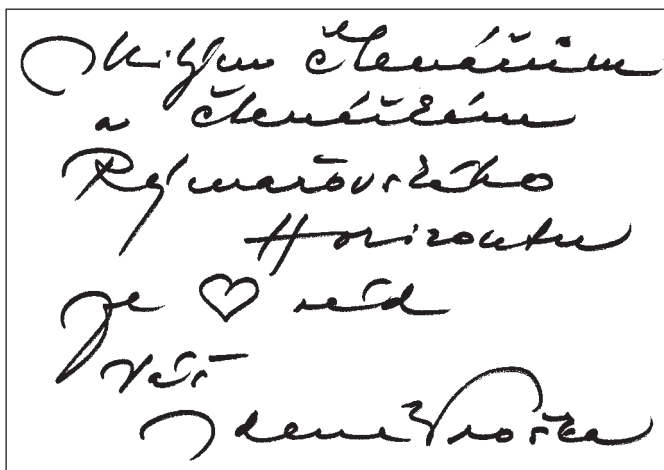 Milým čtenářům
a čtenářkám
Rýmařovského
Horizontu
je ♡ rád
Váš
Zdeněk Troška